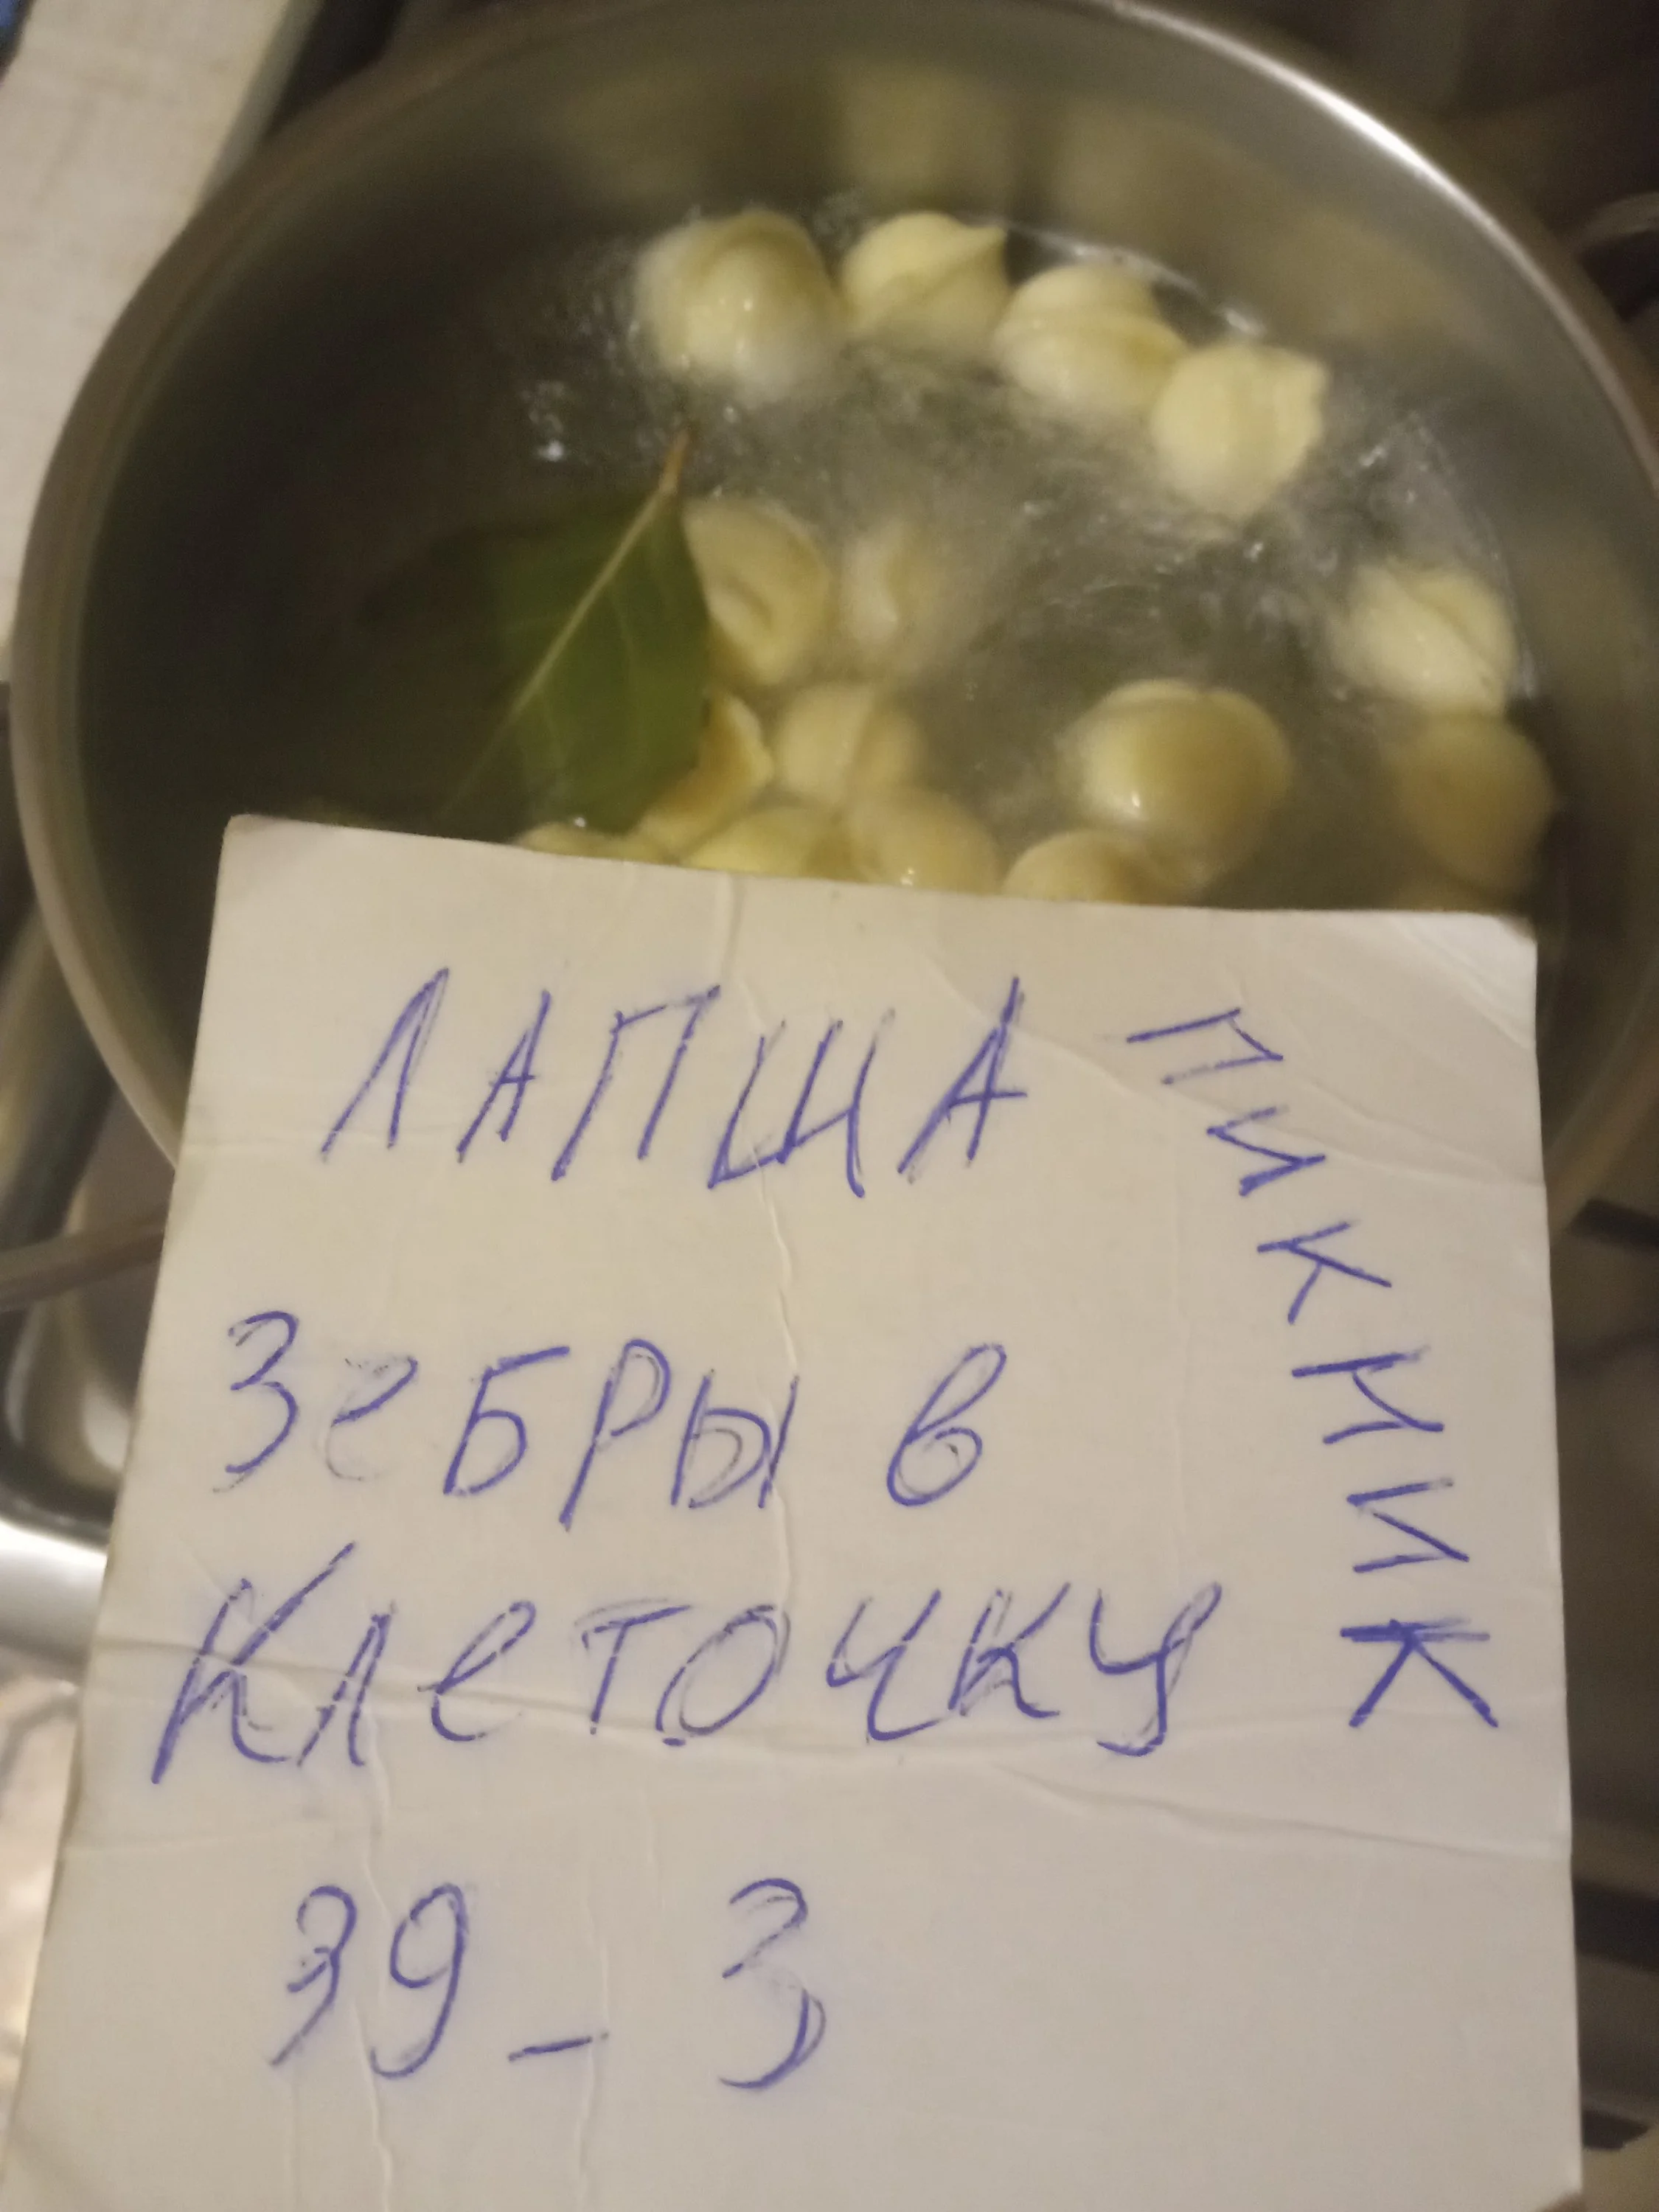 ЛАПША
ЗеБРЫ в
Клеточку
39_3
ПИКМИК